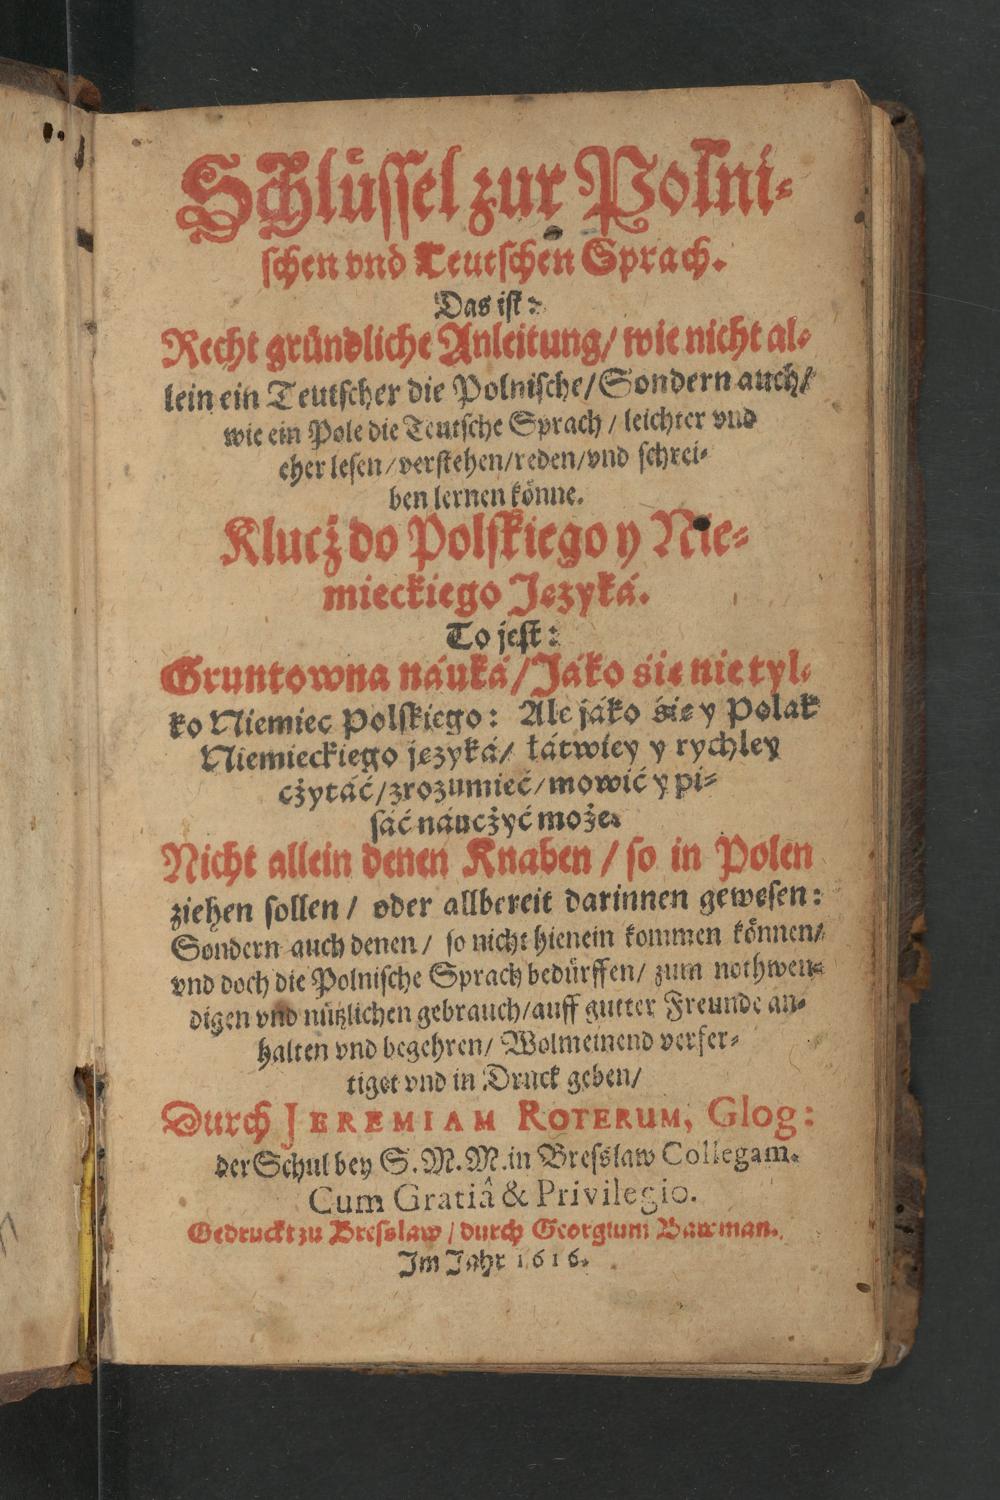 Schlüssel zur Polni-
schen vnd Teutschen Sprach.
Das ist:
Recht gründliche Anleitung/ wie nicht al-
lein ein Teutscher die Polnische/ Sondern auch/
wie ein Pole die Teutsche Sprach / leichter vnd
eher lesen/verstehen/reden/vnd schrei-
ben lernen könne.
Klucż do Polskiego y Nie-
mieckiego Języká.
To jest:
Gruntowna náuká/Jáko się nie tyl-
ko Niemiec Polskiego: Ale jáko się y Polak
Niemieckiego języká/ łátwiey y rychley
cżytáć/zrozumieć/mowić y pi-
sáć náucżyć może.
Nicht allein denen Knaben / so in Polen
ziehen sollen / oder allbereit darinnen gewesen:
Sondern auch denen / so nicht hienein kommen können/
vnd doch die Polnische Sprach bedürffen/ zum nothwen-
digen vnd nützlichen gebrauch/auff gutter Freunde an-
halten vnd begehren/ Wolmeinend verfer-
tiget vnd in Druck geben/
Durch JEREMIAM ROTERUM, Glog:
der Schul bey S. M. M. in Bresslaw Collegam.
Cum Gratiâ & Privilegio.
Gedruckt zu Bresslaw / durch Georgium Bawman.
Im Jahr 1616.